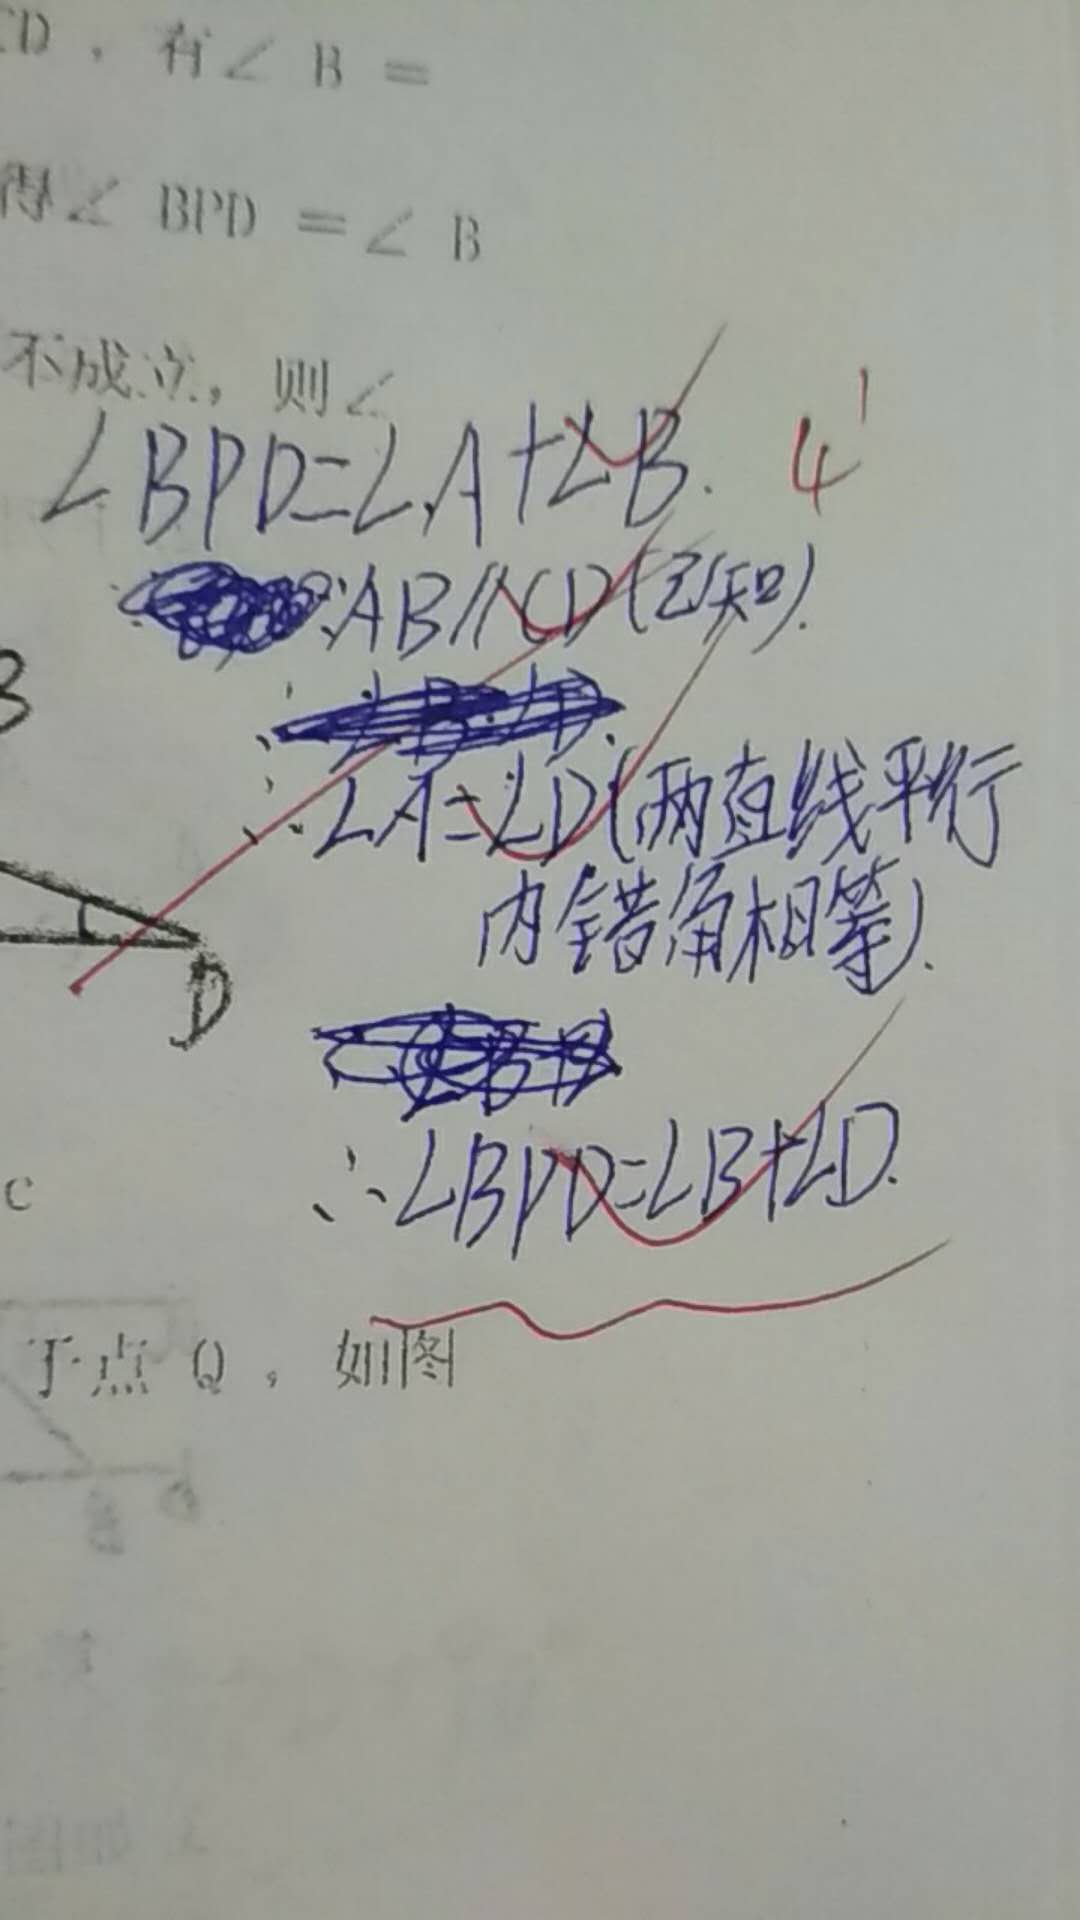 CD，有∠ B =
得∠ BPD =∠ B
不成立，则∠
∠BPD=∠A+∠B. 4'
∵AB∥CD(已知).
∴∠A=∠D(两直线平行
内错角相等).
B
D
∴∠BPD=∠B+∠D.
C
于点 Q，如图